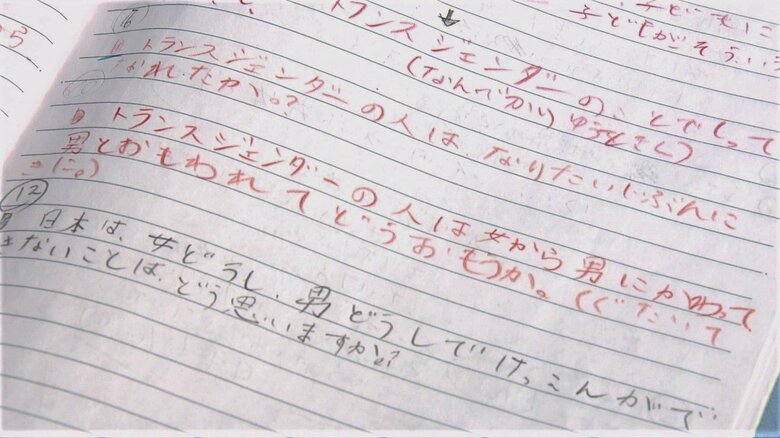 子どもに
子どもがそうい
から
⑥
トランスジェンダーのことでしって
(なんでか)りゆうときく)
トランスジェンダーの人は、なりたいじぶんに
なれしたか。?
トランスジェンダーの人は女から男にかわって
男とおもわれてどうおもうか。(ぐたいて
きに。)
⑫
日本は、女どうし、男どうしでけっこんがで
きないことは、どう思いますか?